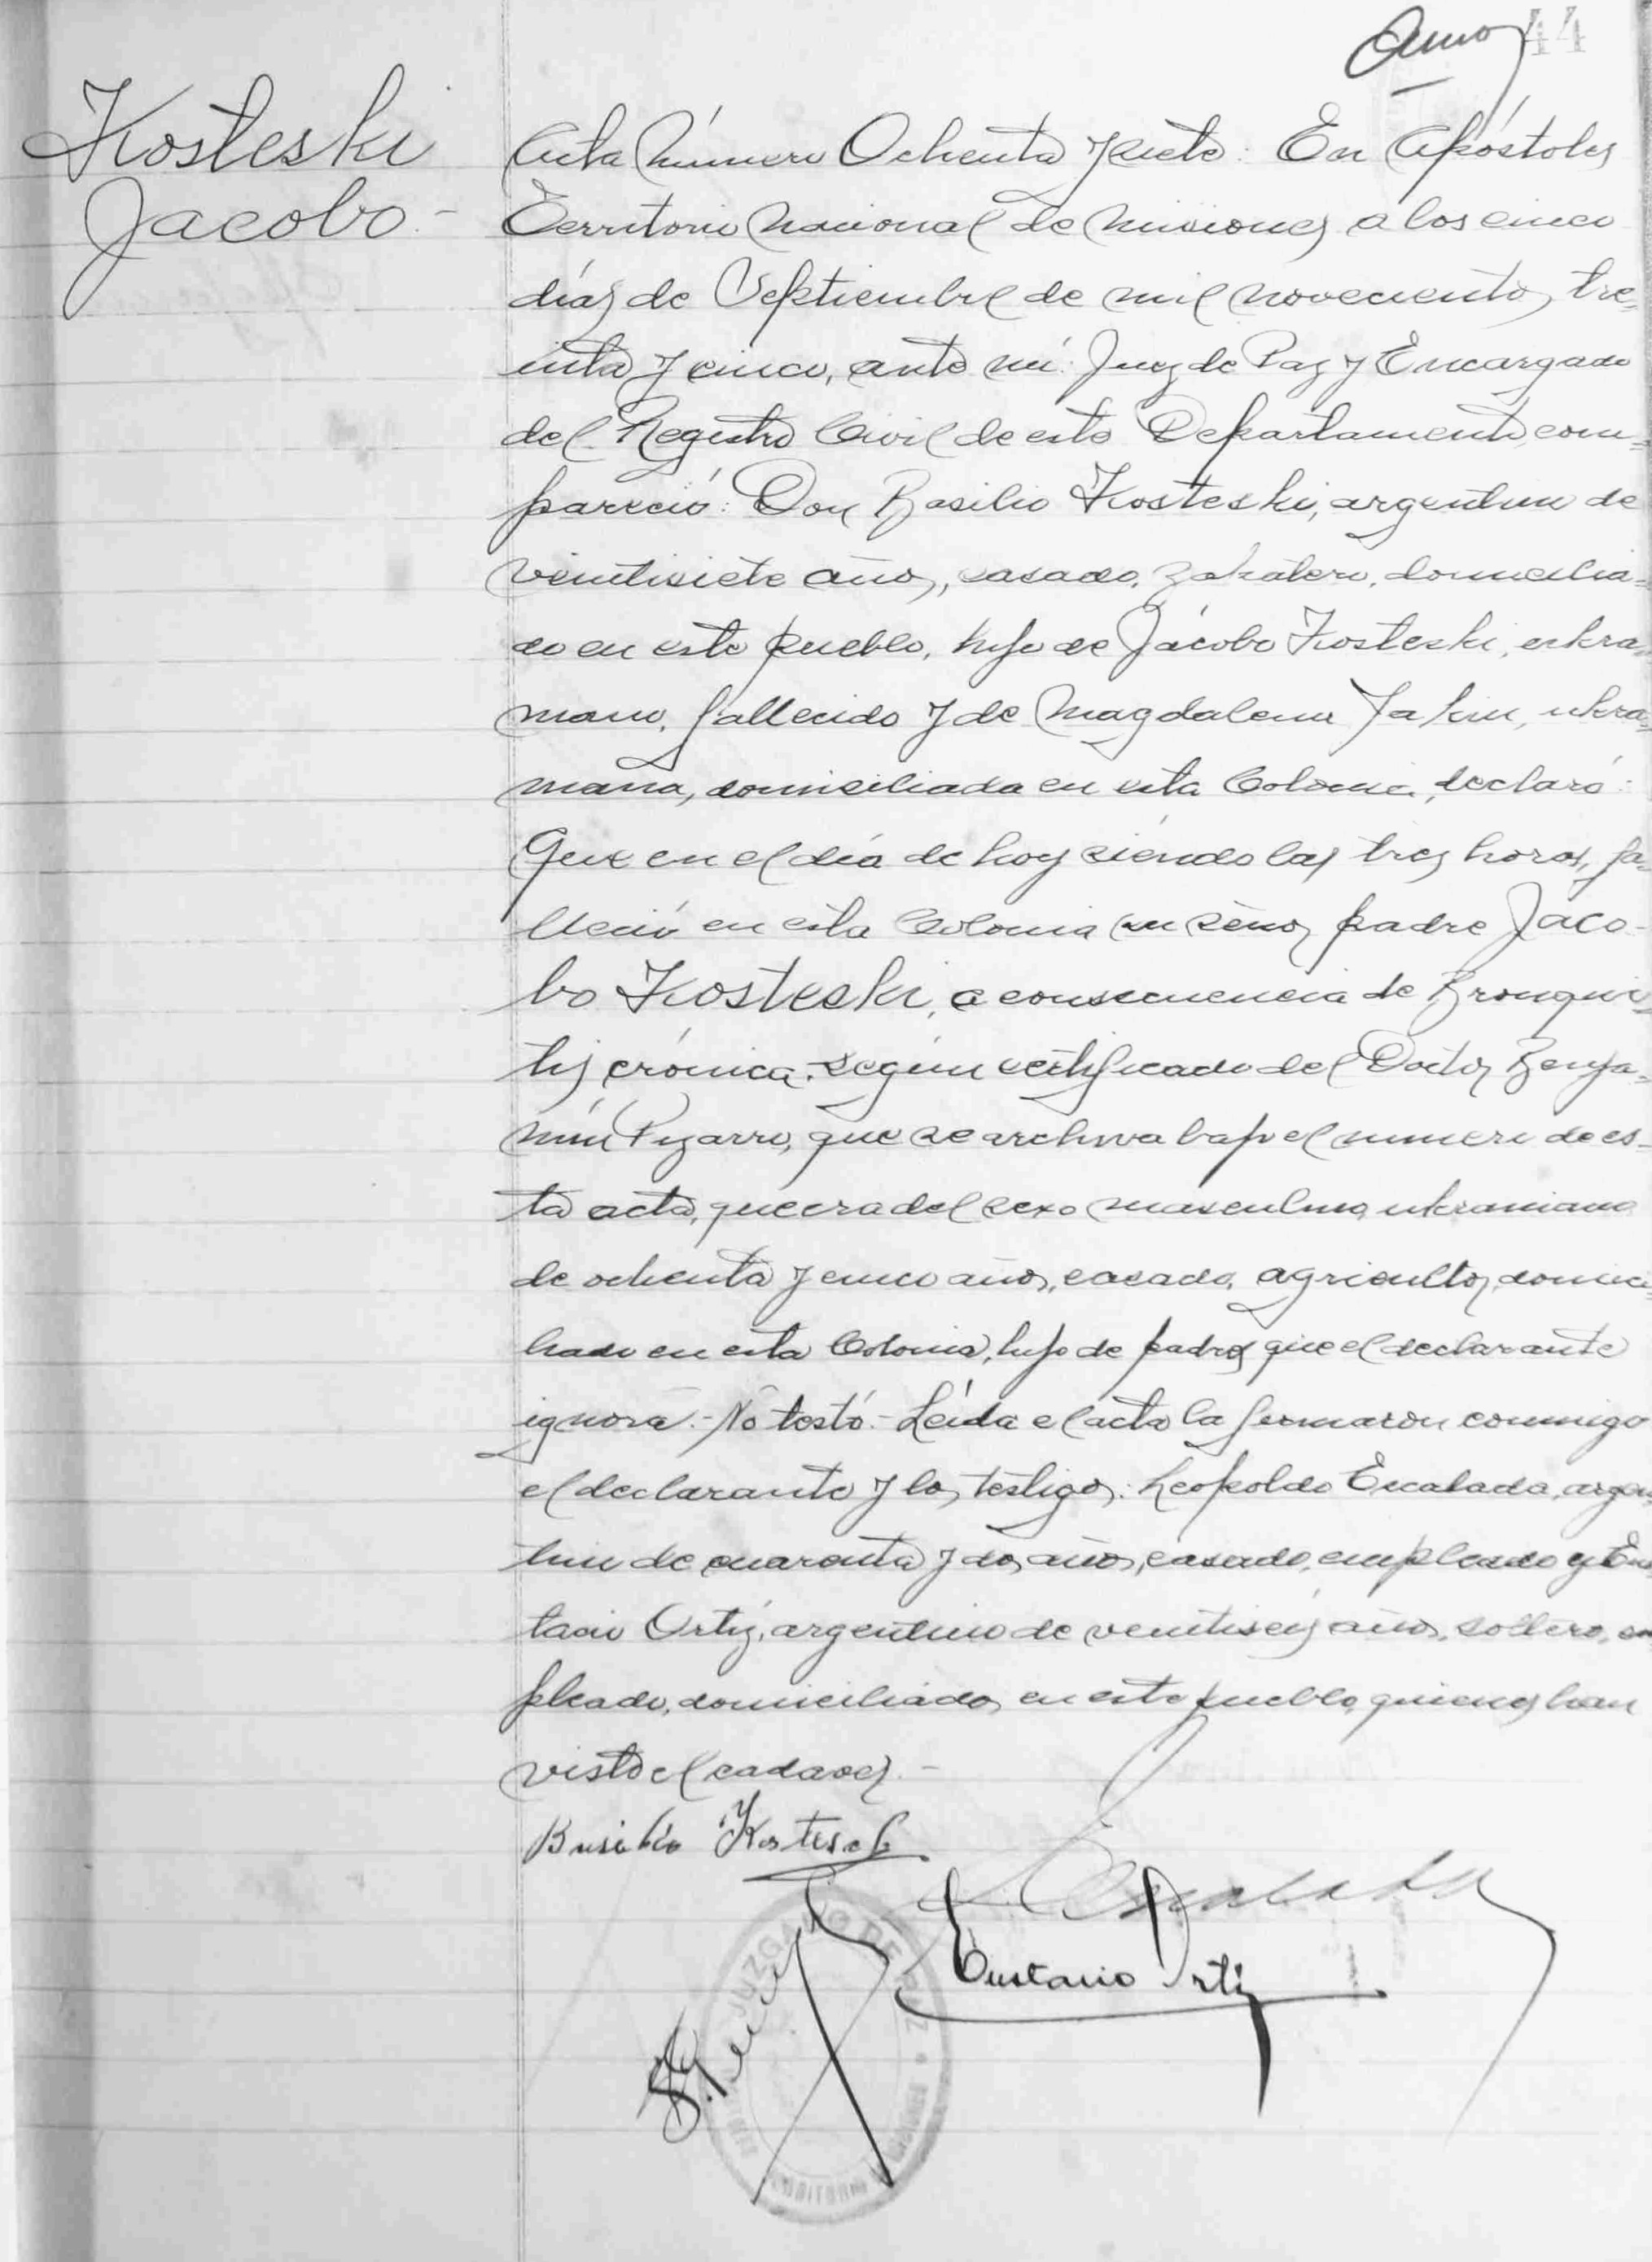 44
Kosteski
Jacobo.-
Acta Número Ochenta y siete: En Apóstoles
Territorio Nacional de Misiones a los cinco
días de Septiembre de mil novecientos tre-
inta y cinco, ante mí: Juez de Paz y Encargado
del Registro Civil de este Departamento com-
pareció: Don Basilio Kosteski, argentino de
veintisiete años, casado, zapatero, domicilia-
do en este pueblo, hijo de Jacobo Kosteski, ukra-
niano, fallecido y de Magdalena, ukra-
niana, domiciliada en esta Colonia, declaró:
Que en el día de hoy siendo las tres horas, fa-
lleció en esta Colonia su señor padre Jaco-
bo Kosteski, a consecuencia de Bronqui-
tis crónica, según certificado del Doctor Benja-
mín Pizarro, que se archiva bajo el número de es-
ta acta, que era del sexo masculino, ukraniano
de ochenta y cinco años, casado, agricultor, domici-
liado en esta Colonia, hijo de padres que el declarante
ignora.- No testó.- Leída el acta la firmaron conmigo
el declarante y los testigos: Leopoldo Escalada, argen-
tino de cuarenta y dos años, casado, empleado y Eus-
tacio Ortiz, argentino de veintiseis años, soltero, em-
pleado, domiciliados en este pueblo, quienes han
visto el cadaver.-
Basilio
L Escalada
Eustacio Ortiz
JUZGADO DE PAZ
MISIONES